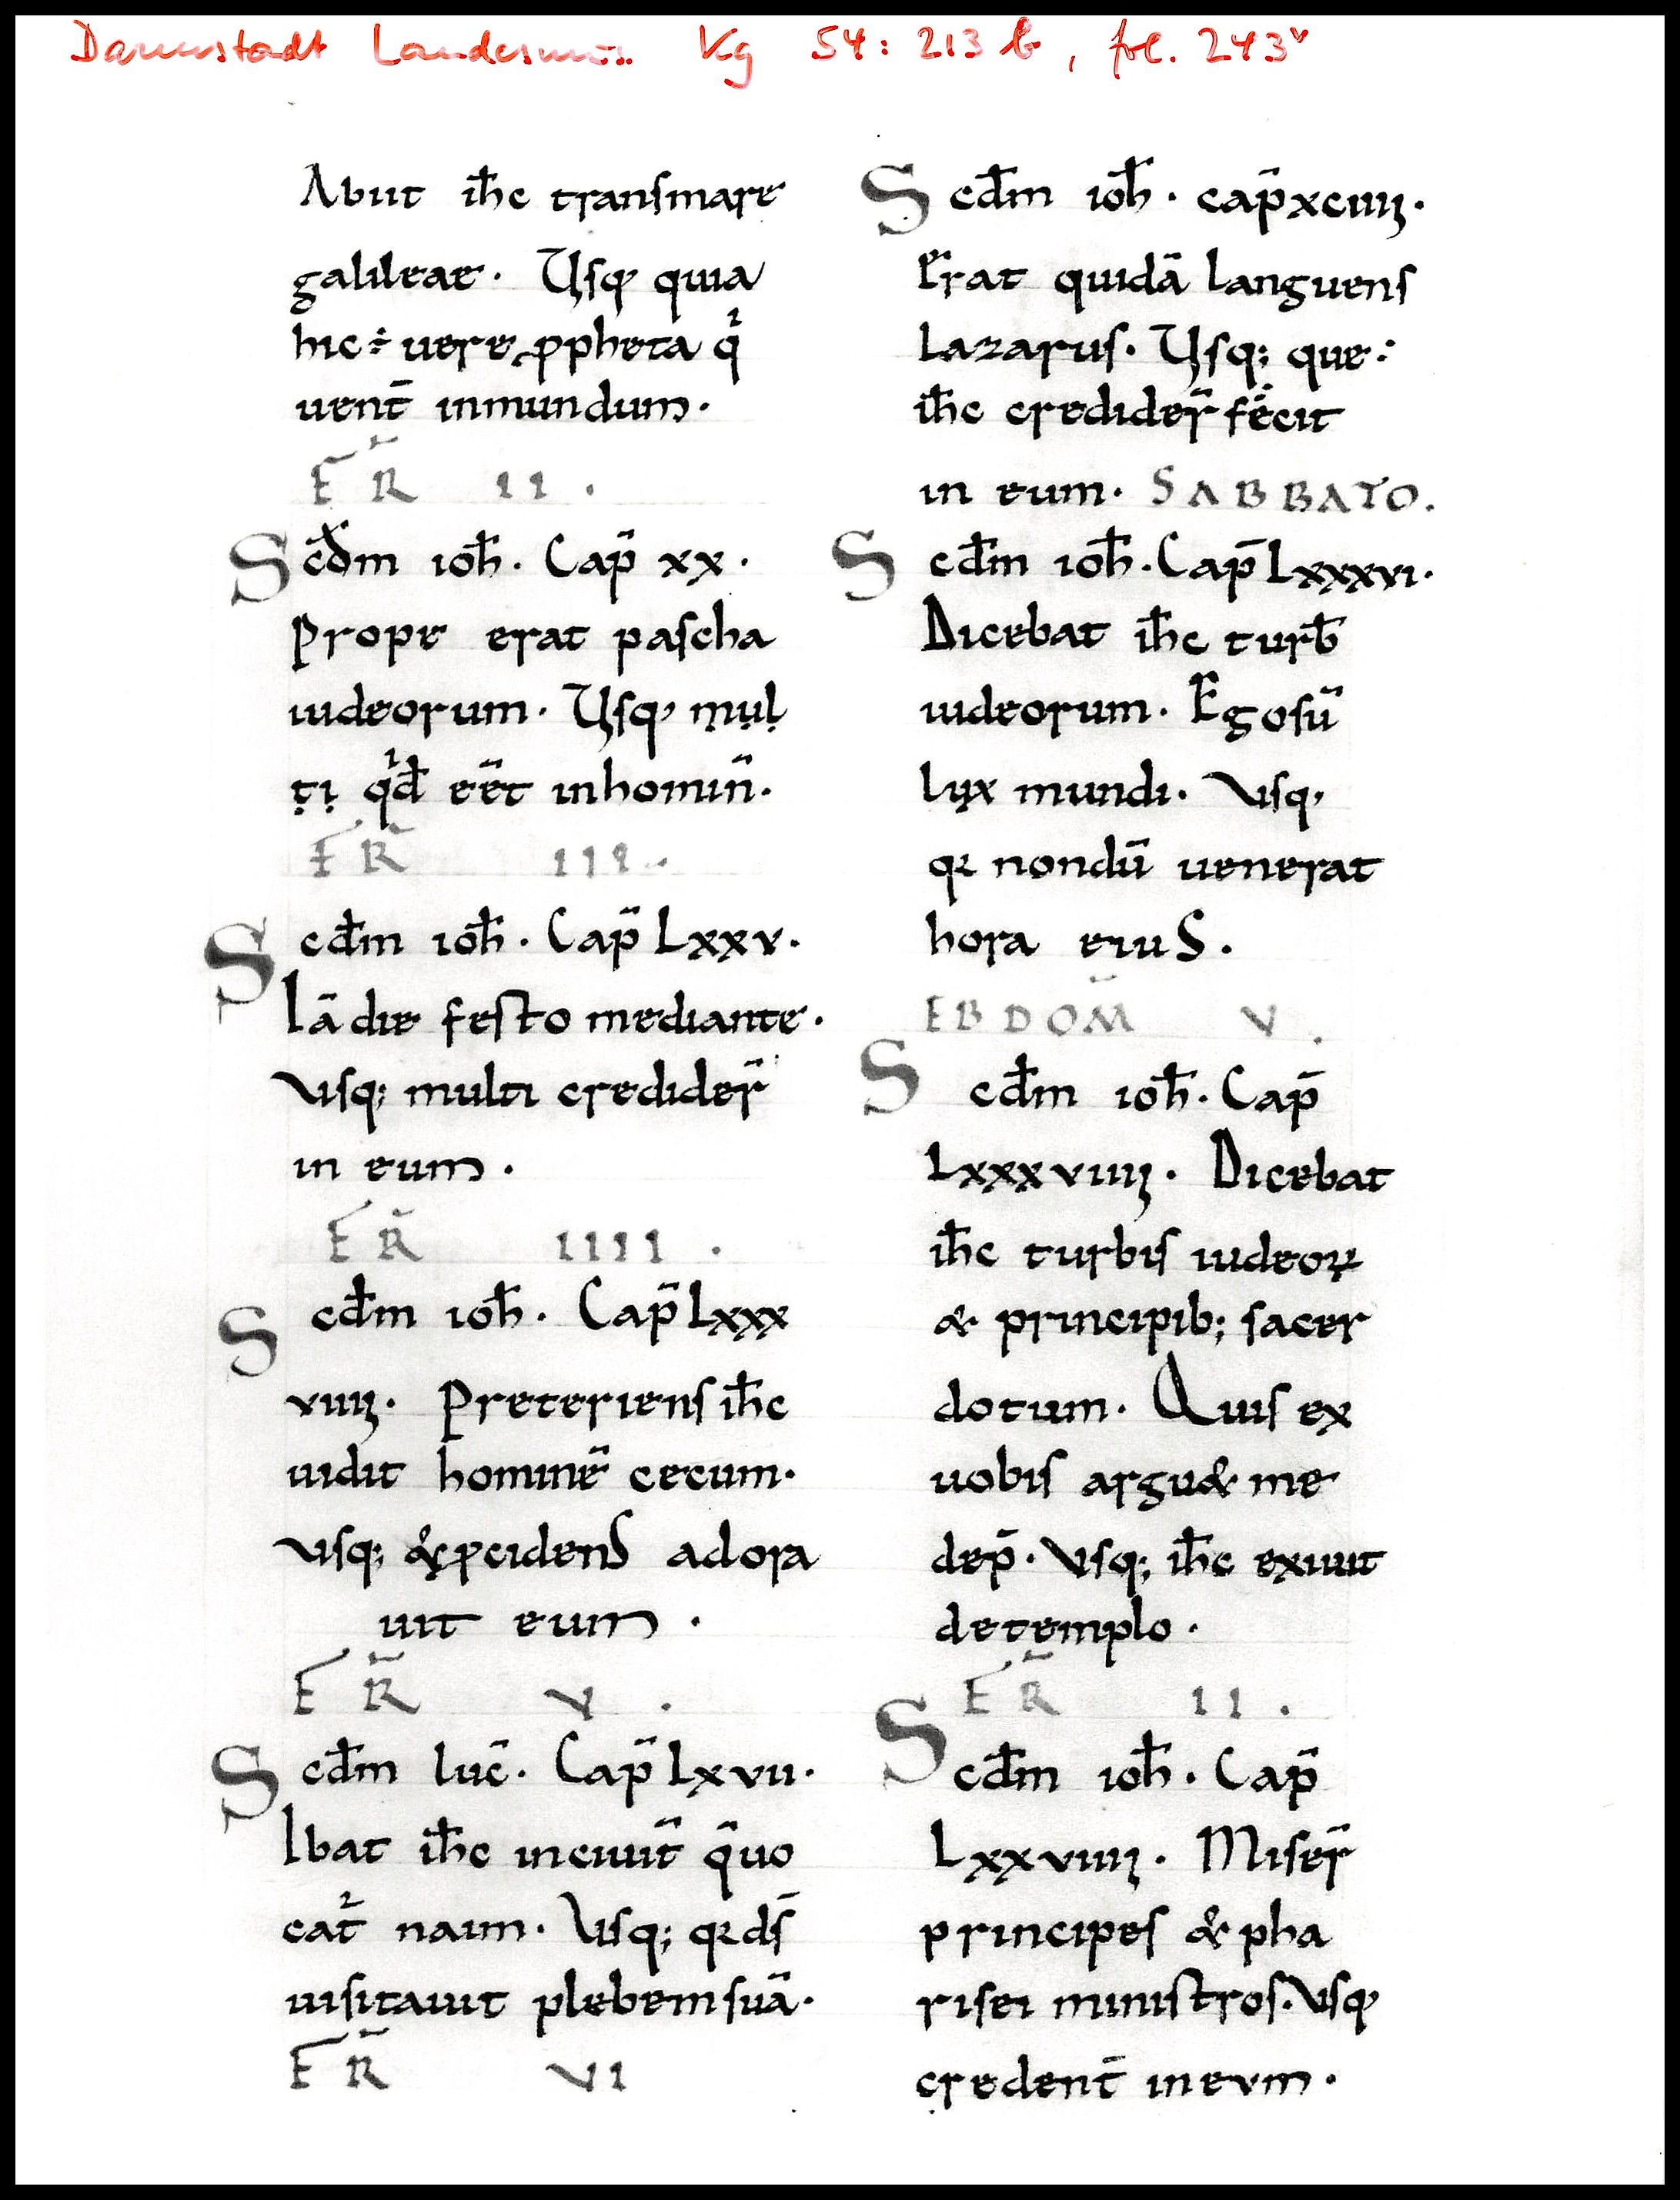 Darmstadt Landesmus. Kg 54: 213 b, fol. 243v
Abiit ih̅c transmare
galileae. Usq; quia
hic ÷ uere ꝓpheta qͥ
uent̅ inmundum.
FR̅ II.
Scd̅m ioh̅. Cap̅ xx.
Prope erat pascha
iudeorum. Usq; mul
ti qͥd ee̅t inhomin̅.
FR̅ III.
Scd̅m ioh̅. Cap̅ Lxxv.
Ia̅ die festo mediante.
Usq; multi credider̅
in eum.
FR̅ IIII.
Scd̅m ioh̅. Cap̅ Lxxx
viiii. Preteriens ih̅c
uidit homine̅ cecum.
Usq; & ꝓcidens adora
uit eum.
FR̅ V.
Scd̅m luc̅. Cap̅ Lxvii.
Ibat ih̅c inciuit̅ q̅uo
cat᷑ naim. Usq; qꝛ ds̅
uisitauit plebem sua̅.
FR̅ VI
Scd̅m ioh̅. cap̅ xciiii.
Erat quida̅ languens
Lazarus. Usq; que:
ih̅c credider̅ fecit
in eum. SABBATO.
Scd̅m ioh̅. Cap̅ Lxxxvi.
Dicebat ih̅c turb̅
iudeorum. Ego su̅
lux mundi. Usq;
qꝛ nondu̅ uenerat
hora eius.
EBDOM̅ V.
Scd̅m ioh̅. Cap̅
Lxxxviiii. Dicebat
ih̅c turbis iudeoꝝ
& principib; sacer
dotum. Quis ex
uobis argu& me
dep̅. Usq; ih̅c exiuit
detemplo.
FR̅ II.
Scd̅m ioh̅. Cap̅
Lxxviiii. Miser̅
principes & pha
risei ministros. Usq;
credent̅ ineum.